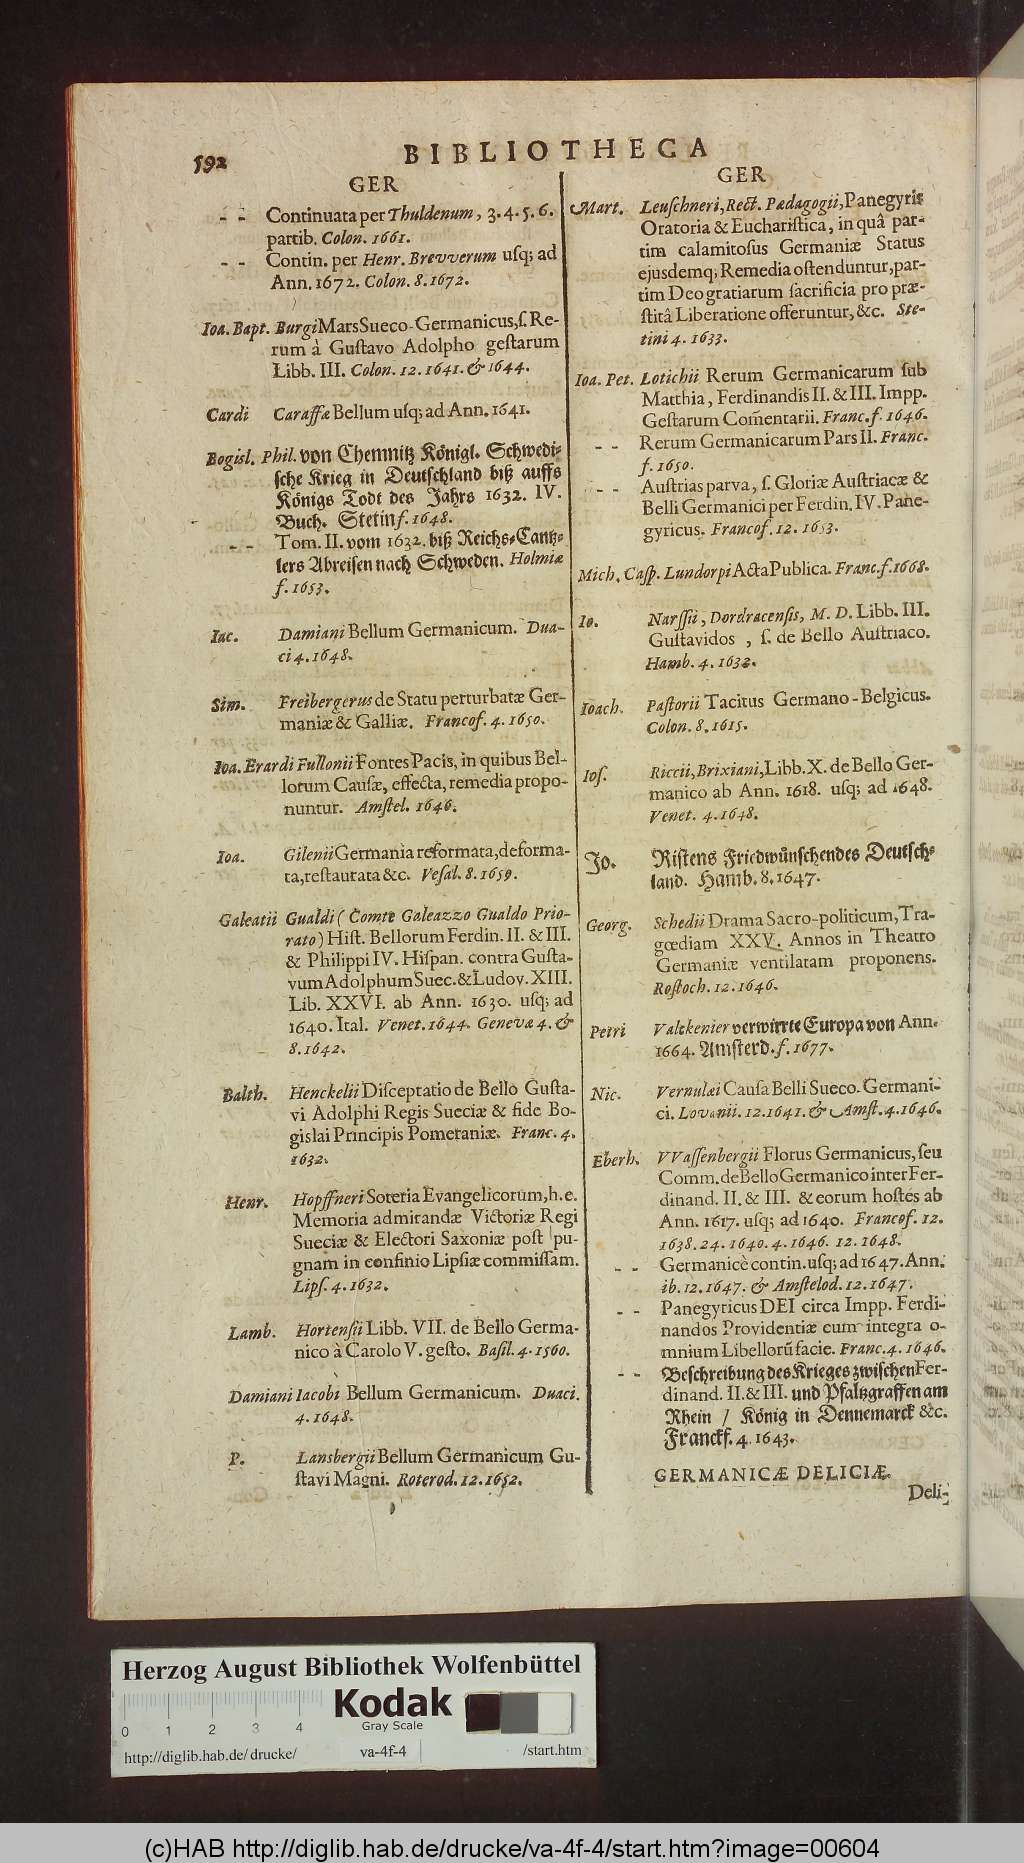 592
BIBLIOTHECA
GER
- - Continuata per Thuldenum, 3. 4. 5. 6.
partib. Colon. 1661.
- - Contin. per Henr. Brevverum usq; ad
Ann. 1672. Colon. 8. 1672.
Ioa. Bapt. Burgi Mars Sueco-Germanicus, ſ. Re-
rum à Guſtavo Adolpho geſtarum
Libb. III. Colon. 12. 1641. & 1644.
Cardi Caraffæ Bellum uſq; ad Ann. 1641.
Bogisl. Phil. von Chemnitz Königl. Schwedi-
ſche Krieg in Deutſchland biß auffs
Königs Todt des Jahrs 1632. IV.
Buch. Stetin f. 1648.
- - Tom. II. vom 1632. biß Reichs-Cantz-
lers Abreiſen nach Schweden. Holmiæ
f. 1653.
Iac. Damiani Bellum Germanicum. Dua-
ci 4. 1648.
Sim. Freibergerus de Statu perturbatæ Ger-
maniæ & Galliæ. Francof. 4. 1650.
Ioa. Erardi Fullonii Fontes Pacis, in quibus Bel-
lorum Cauſæ, effecta, remedia propo-
nuntur. Amſtel. 1646.
Ioa. Gilenii Germania reformata, deforma-
ta, reſtaurata &c. Veſal. 8. 1659.
Galeatii Gualdi (Comte Galeazzo Gualdo Prio-
rato) Hiſt. Bellorum Ferdin. II. & III.
& Philippi IV. Hiſpan. contra Guſta-
vum Adolphum Suec. & Ludov. XIII.
Lib. XXVI. ab Ann. 1630. uſq; ad
1640. Ital. Venet. 1644. Genevæ 4. &
8. 1642.
Balth. Henckelii Diſceptatio de Bello Guſta-
vi Adolphi Regis Sueciæ & fide Bo-
gislai Principis Pomeraniæ. Franc. 4.
1632.
Henr. Hopffneri Soteria Evangelicorum, h. e.
Memoria admirandæ Victoriæ Regi
Sueciæ & Electori Saxoniæ poſt pu-
gnam in confinio Lipſiæ commiſſam.
Lipſ. 4. 1632.
Lamb. Hortenſii Libb. VII. de Bello Germa-
nico à Carolo V. geſto. Baſil. 4. 1560.
Damiani Iacobi Bellum Germanicum. Duaci.
4. 1648.
P. Lansbergii Bellum Germanicum Gu-
ſtavi Magni. Roterod. 12. 1652.
GER
Mart. Leuſchneri, Rect. Pædagogii, Panegyris
Oratoria & Euchariſtica, in quâ par-
tim calamitoſus Germaniæ Status
ejusdemq; Remedia oſtenduntur, par-
tim Deo gratiarum ſacrificia pro præ-
ſtitâ Liberatione offeruntur, &c. Ste-
tini 4. 1633.
Ioa. Pet. Lotichii Rerum Germanicarum ſub
Matthia, Ferdinandis II. & III. Impp.
Geſtarum Com̃entarii. Franc. f. 1646.
- - Rerum Germanicarum Pars II. Franc.
f. 1650.
- - Auſtrias parva, ſ. Gloriæ Auſtriacæ &
Belli Germanici per Ferdin. IV. Pane-
gyricus. Francof. 12. 1653.
Mich. Caſp. Lundorpi Acta Publica. Franc. f. 1668.
Io. Narſſii, Dordracenſis, M. D. Libb. III.
Guſtavidos, ſ. de Bello Auſtriaco.
Hamb. 4. 1632.
Ioach. Paſtorii Tacitus Germano-Belgicus.
Colon. 8. 1615.
Ioſ. Riccii, Brixiani, Libb. X. de Bello Ger-
manico ab Ann. 1618. uſq; ad 1648.
Venet. 4. 1648.
Jo. Riſtens Friedwünſchendes Deutſch-
land. Hamb. 8. 1647.
Georg. Schedii Drama Sacro-politicum, Tra-
gœdiam XXV. Annos in Theatro
Germaniæ ventilatam proponens.
Roſtoch. 12. 1646.
Petri Valckenier verwirrte Europa von Ann.
1664. Amſterd. f. 1677.
Nic. Vernulæi Cauſa Belli Sueco-Germani-
ci. Lovanii. 12. 1641. & Amſt. 4. 1646.
Eberh. VVaſſenbergii Florus Germanicus, ſeu
Comm. de Bello Germanico inter Fer-
dinand. II. & III. & eorum hoſtes ab
Ann. 1617. uſq; ad 1640. Francof. 12.
1638. 24. 1640. 4. 1646. 12. 1648.
- - Germanicè contin. uſq; ad 1647. Ann.
ib. 12. 1647. & Amſtelod. 12. 1647.
- - Panegyricus DEI circa Impp. Ferdi-
nandos Providentiæ cum integra o-
mnium Libellorũ facie. Franc. 4. 1646.
- - Beſchreibung des Krieges zwiſchen Fer-
dinand. II. & III. und Pfaltzgraffen am
Rhein / König in Dennemarck &c.
Franckf. 4. 1643.
GERMANICÆ DELICIÆ.
Deli-
Herzog August Bibliothek Wolfenbüttel
Kodak
Gray Scale
0 1 2 3 4
http://diglib.hab.de/drucke/ va-4f-4 /start.htm
(c)HAB http://diglib.hab.de/drucke/va-4f-4/start.htm?image=00604